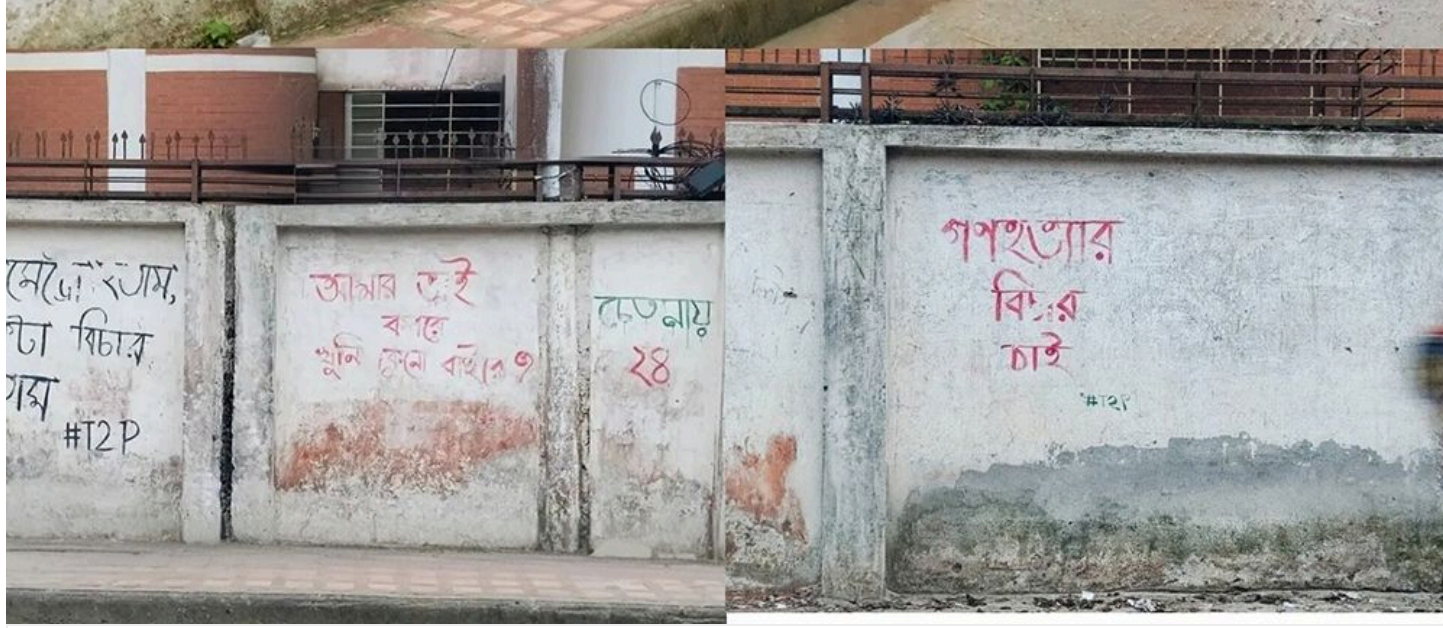 বিচার
#T2P
আমার ভাই
কবরে
খুনি কেনো বাইরে ?
চেতনায়
২৪
গণহত্যার
বিচার
চাই
#T2P